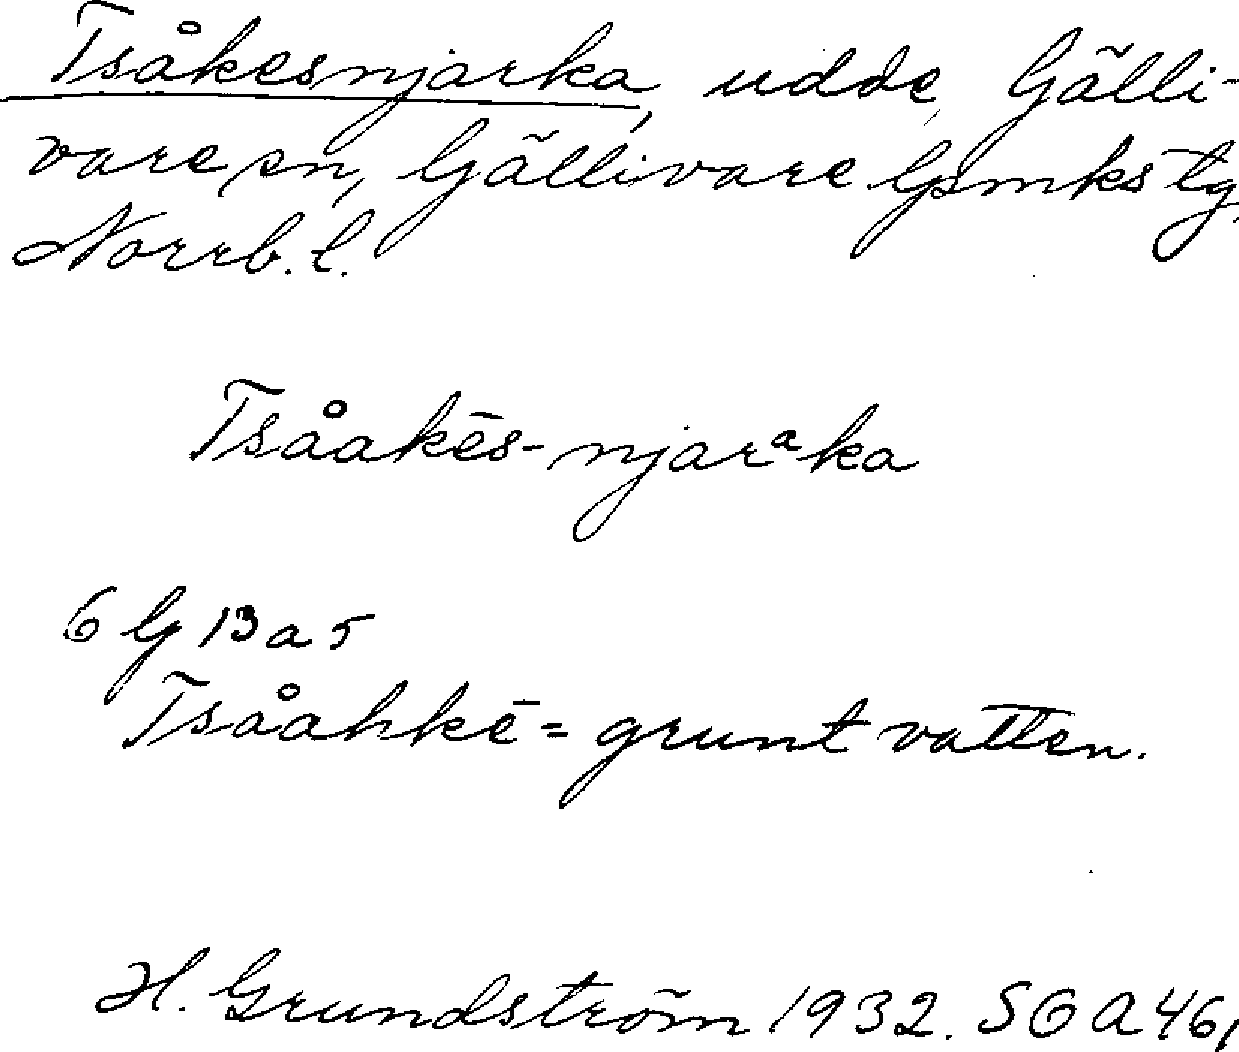 Tsåkesnjarka, udde, Gälli-
vare sn, Gällivare lpmks tg,
Norrb. l.
Tsåakēs-njarᵃka
6 G 13 a 5
Tsåahkē = grunt vatten.
H. Grundström 1932. SOA 46,